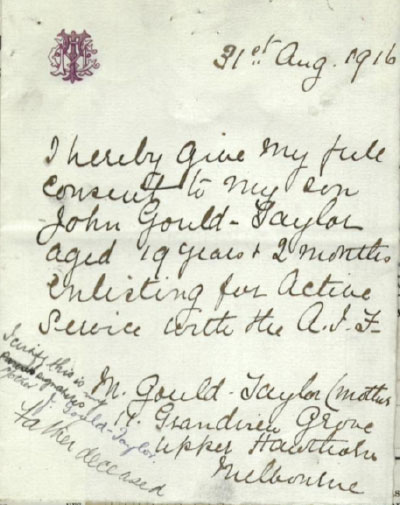 31st Aug. 1916
I hereby give my full
consent to my son
John Gould-Taylor
aged 19 years & 2 months
enlisting for Active
Service with the A.I.F
M. Gould-Taylor (mother
Grandview Grove
Upper Hawthorn
Melbourne
I certify this is my
mother's
J. Gould-Taylor.
Father deceased